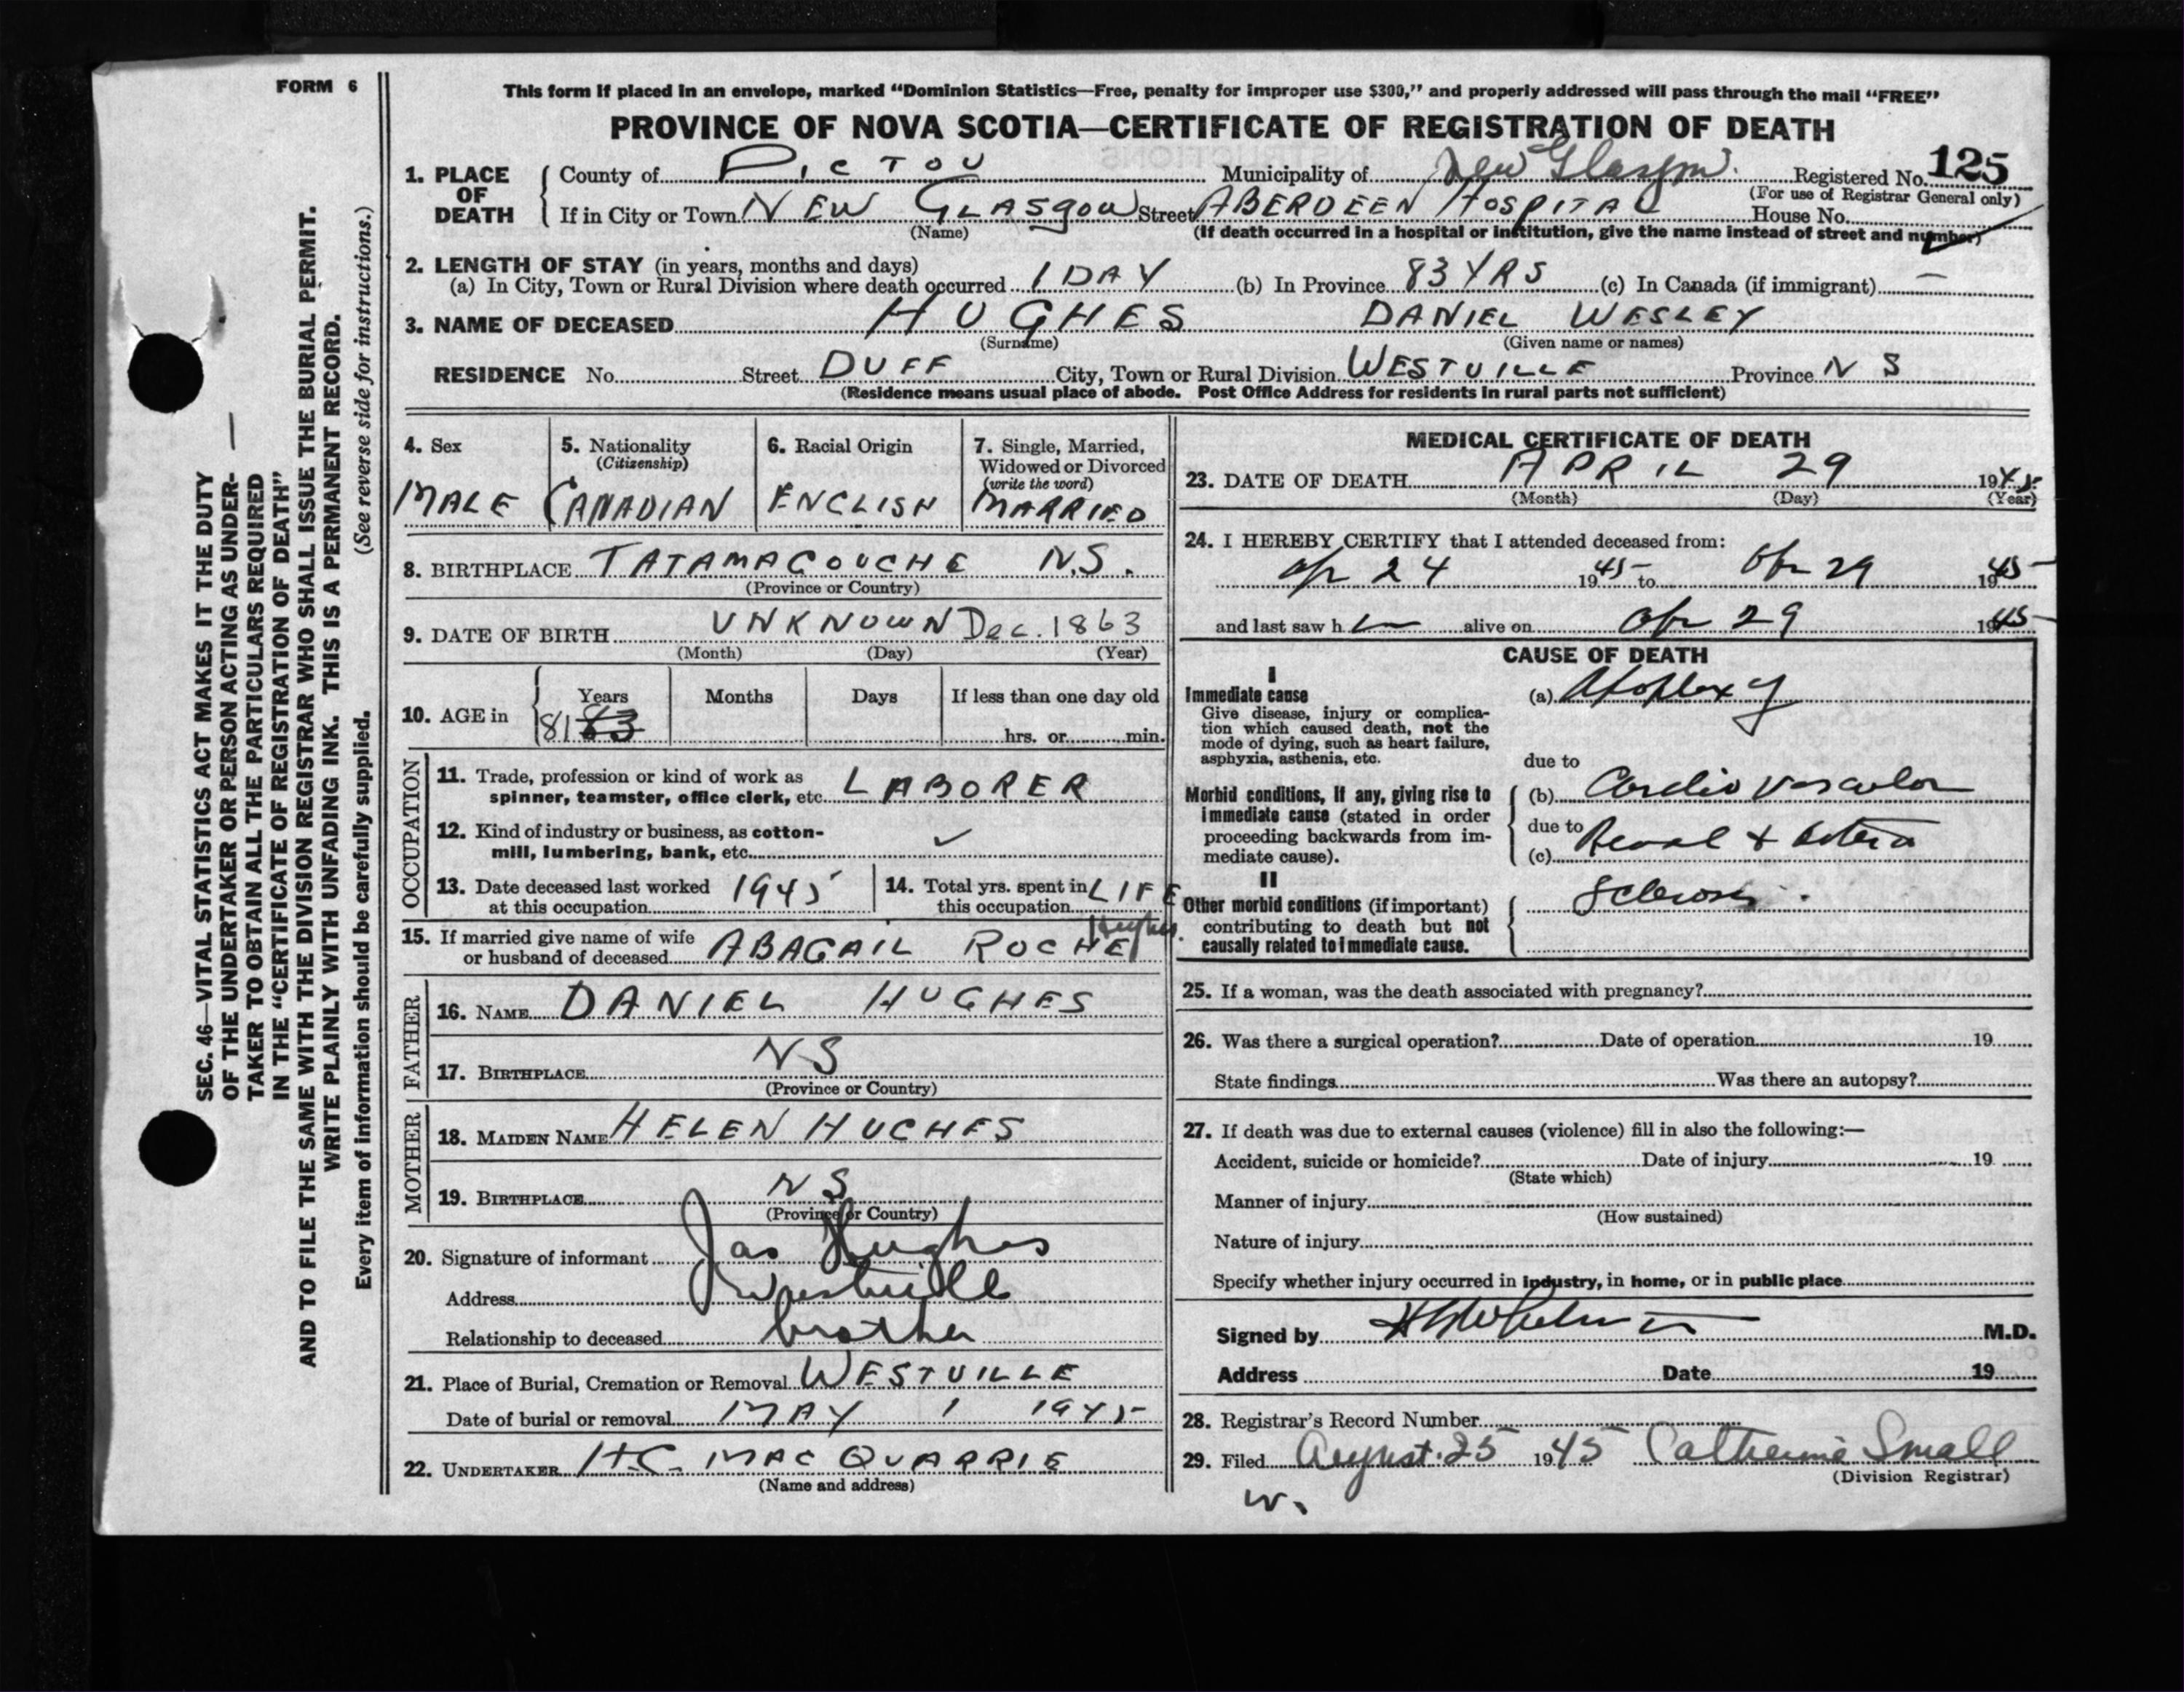 FORM 6
This form if placed in an envelope, marked “Dominion Statistics—Free, penalty for improper use $300,” and properly addressed will pass through the mail “FREE”
PROVINCE OF NOVA SCOTIA—CERTIFICATE OF REGISTRATION OF DEATH
1. PLACE OF DEATH
County of PICTOU Municipality of New Glasgow. Registered No. 125
(For use of Registrar General only)
If in City or Town NEW GLASGOW Street ABERDEEN HOSPITAL House No.
(Name) (If death occurred in a hospital or institution, give the name instead of street and number)
2. LENGTH OF STAY (in years, months and days)
(a) In City, Town or Rural Division where death occurred 1 DAY (b) In Province 83 YRS (c) In Canada (if immigrant) —
3. NAME OF DECEASED HUGHES DANIEL WESLEY
(Surname) (Given name or names)
RESIDENCE No. Street DUFF City, Town or Rural Division WESTVILLE Province N S
(Residence means usual place of abode. Post Office Address for residents in rural parts not sufficient)
4. Sex
MALE
5. Nationality
(Citizenship)
CANADIAN
6. Racial Origin
ENGLISH
7. Single, Married,
Widowed or Divorced
(write the word)
MARRIED
8. BIRTHPLACE TATAMAGOUCHE N.S.
(Province or Country)
9. DATE OF BIRTH UNKNOWN Dec. 1863
(Month) (Day) (Year)
10. AGE in
Years Months Days If less than one day old
81 83 hrs. or min.
OCCUPATION
11. Trade, profession or kind of work as
spinner, teamster, office clerk, etc. LABORER
12. Kind of industry or business, as cotton-
mill, lumbering, bank, etc. ✓
13. Date deceased last worked
at this occupation 1945
14. Total yrs. spent in
this occupation LIFE
15. If married give name of wife
or husband of deceased ABAGAIL ROCHE Hughes.
FATHER
16. NAME DANIEL HUGHES
17. BIRTHPLACE NS
(Province or Country)
MOTHER
18. MAIDEN NAME HELEN HUGHES
19. BIRTHPLACE NS
(Province or Country)
20. Signature of informant Jas Hughes
Address Westville
Relationship to deceased brother
21. Place of Burial, Cremation or Removal WESTVILLE
Date of burial or removal MAY 1 1945
22. UNDERTAKER H.C. MACQUARRIE
(Name and address)
MEDICAL CERTIFICATE OF DEATH
23. DATE OF DEATH APRIL 29 1945
(Month) (Day) (Year)
24. I HEREBY CERTIFY that I attended deceased from:
Apr 24 1945 to Apr 29 1945
and last saw h im alive on Apr 29 1945
CAUSE OF DEATH
I
Immediate cause
Give disease, injury or complica-
tion which caused death, not the
mode of dying, such as heart failure,
asphyxia, asthenia, etc.
(a) Apoplexy
due to
Morbid conditions, if any, giving rise to
immediate cause (stated in order
proceeding backwards from im-
mediate cause).
(b) Cardio Vascular
due to
(c) Renal + Arterio
II
Sclerosis.
Other morbid conditions (if important)
contributing to death but not
causally related to immediate cause.
25. If a woman, was the death associated with pregnancy?
26. Was there a surgical operation? Date of operation 19
State findings Was there an autopsy?
27. If death was due to external causes (violence) fill in also the following:—
Accident, suicide or homicide? Date of injury 19
(State which)
Manner of injury
(How sustained)
Nature of injury
Specify whether injury occurred in industry, in home, or in public place
Signed by M.D.
Address Date 19
28. Registrar’s Record Number
29. Filed August 25 1945 Catherine Small
(Division Registrar)
W.
SEC. 46—VITAL STATISTICS ACT MAKES IT THE DUTY —
OF THE UNDERTAKER OR PERSON ACTING AS UNDER-
TAKER TO OBTAIN ALL THE PARTICULARS REQUIRED
IN THE “CERTIFICATE OF REGISTRATION OF DEATH”
AND TO FILE THE SAME WITH THE DIVISION REGISTRAR WHO SHALL ISSUE THE BURIAL PERMIT.
WRITE PLAINLY WITH UNFADING INK. THIS IS A PERMANENT RECORD.
Every item of information should be carefully supplied. (See reverse side for instructions.)